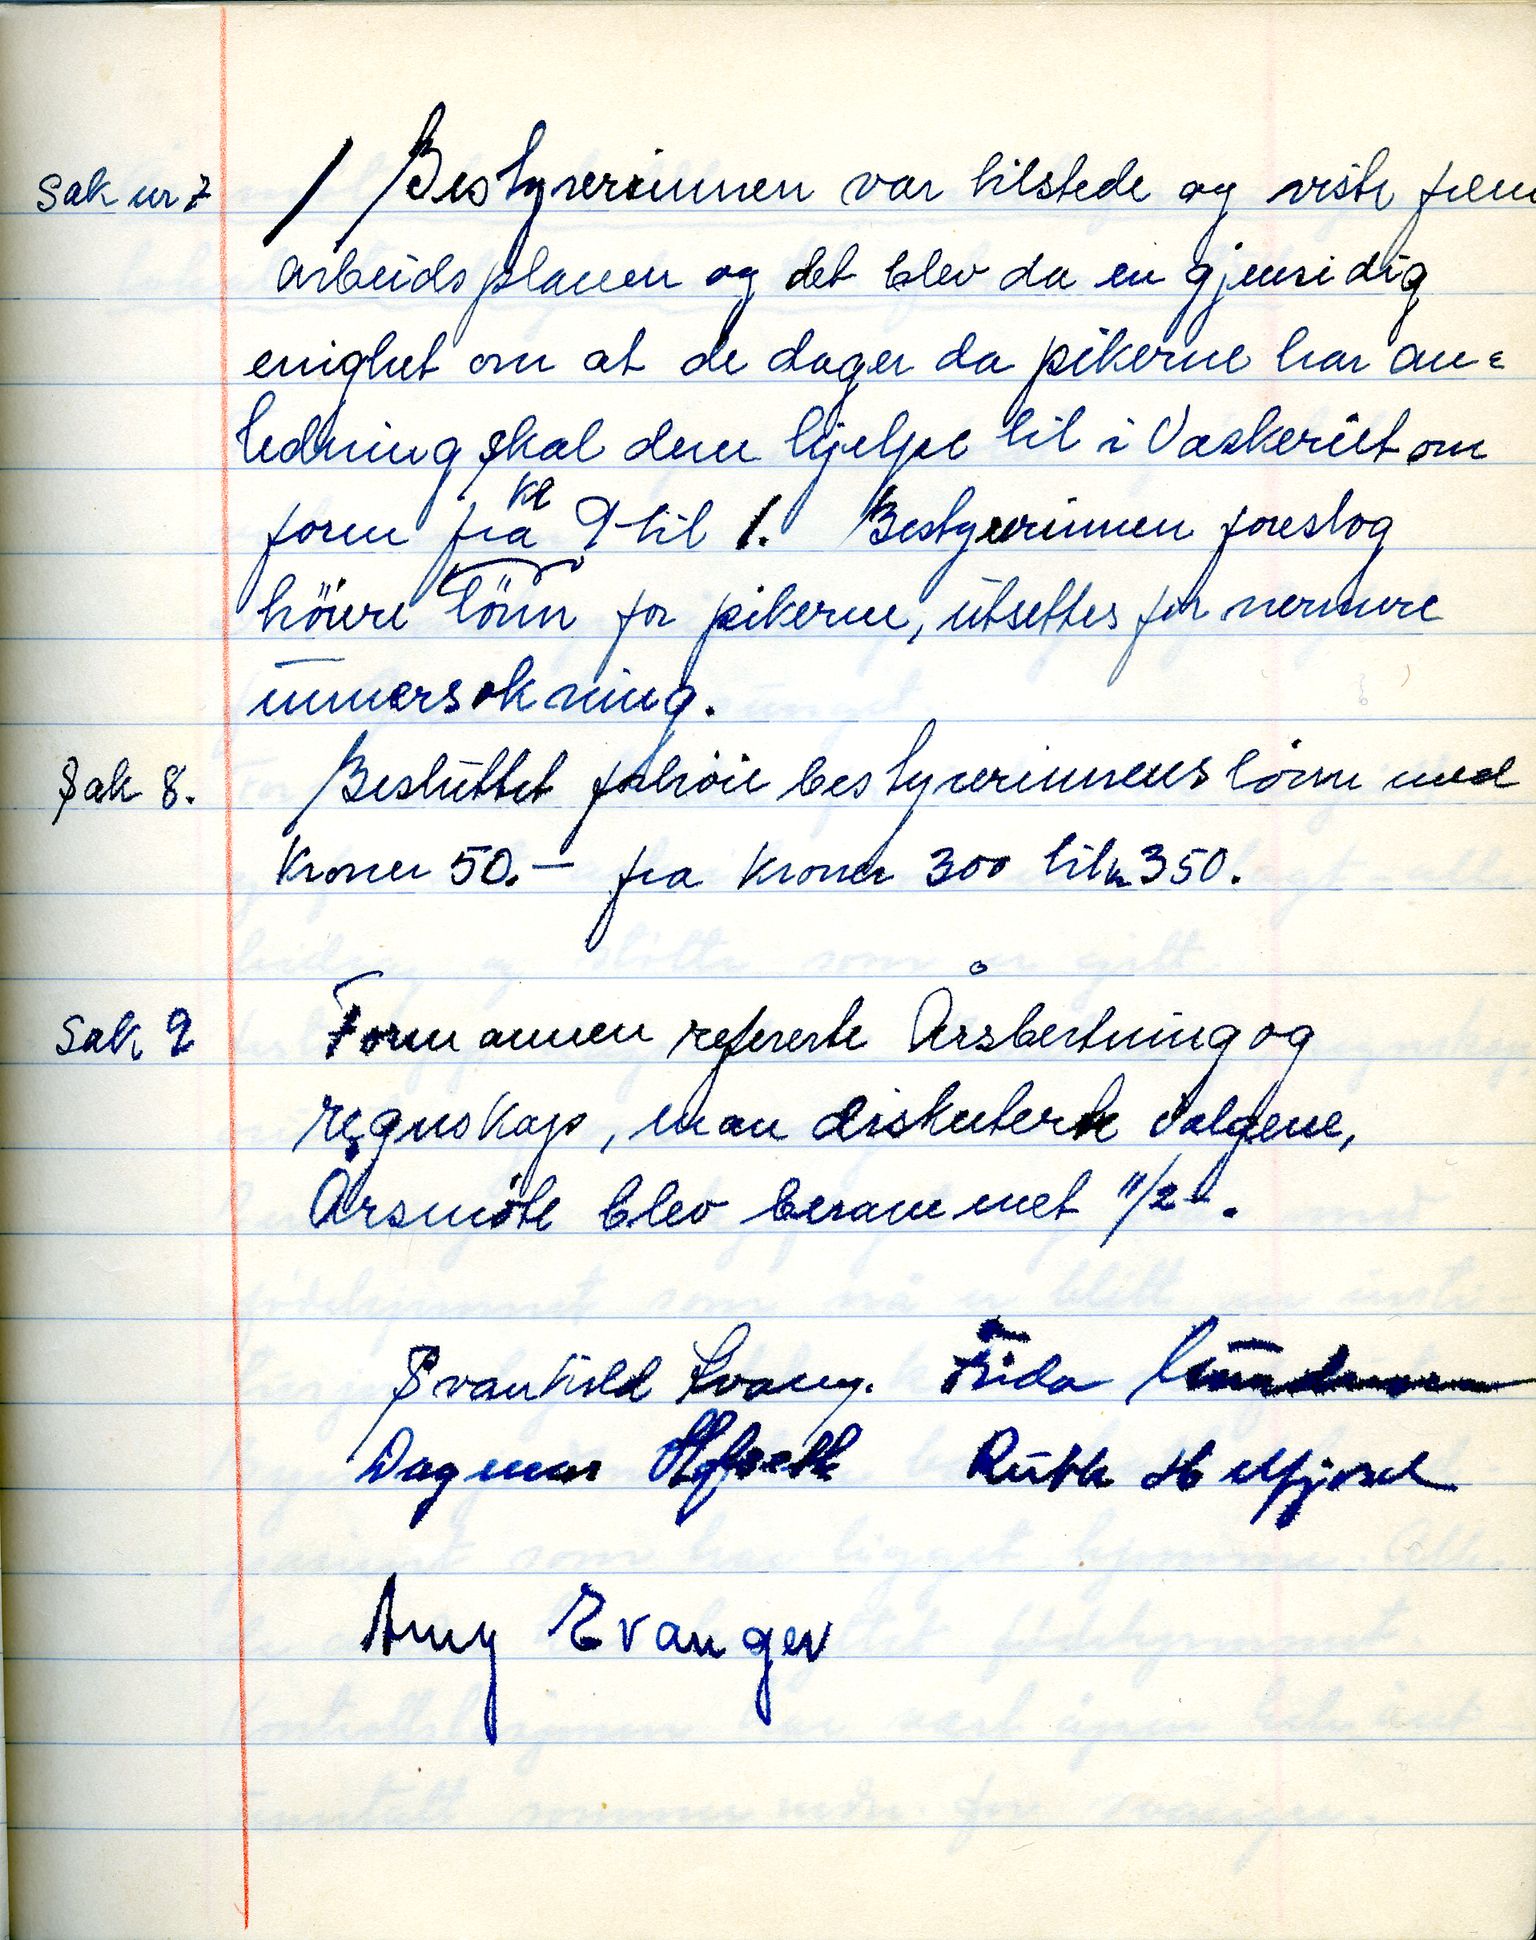 Sak nr 7 / Bestyrerinnen var tilstede og viste frem
arbeidsplanen og det blev da en gjensidig
enighet om at de dager da pikerne har an=
ledning skal dem hjelpe til i Vaskeriet om
form fra kl 9 til 1. Bestyrerinnen foreslog
höiere lönn for pikerne, utsettes for nermere
unnersøkning.
Sak 8. Besluttet forhöie bestyrerinnens lönn med
Kroner 50.- fra Kroner 300 til kr 350.
Sak 9 Formannen refererte Årsbertning og
regnskap, man diskuterte valgene,
Årsmöte blev berammet 11/2-.
Svanhild Evang. Frida
Dagmar Ruth H
Amy Evanger